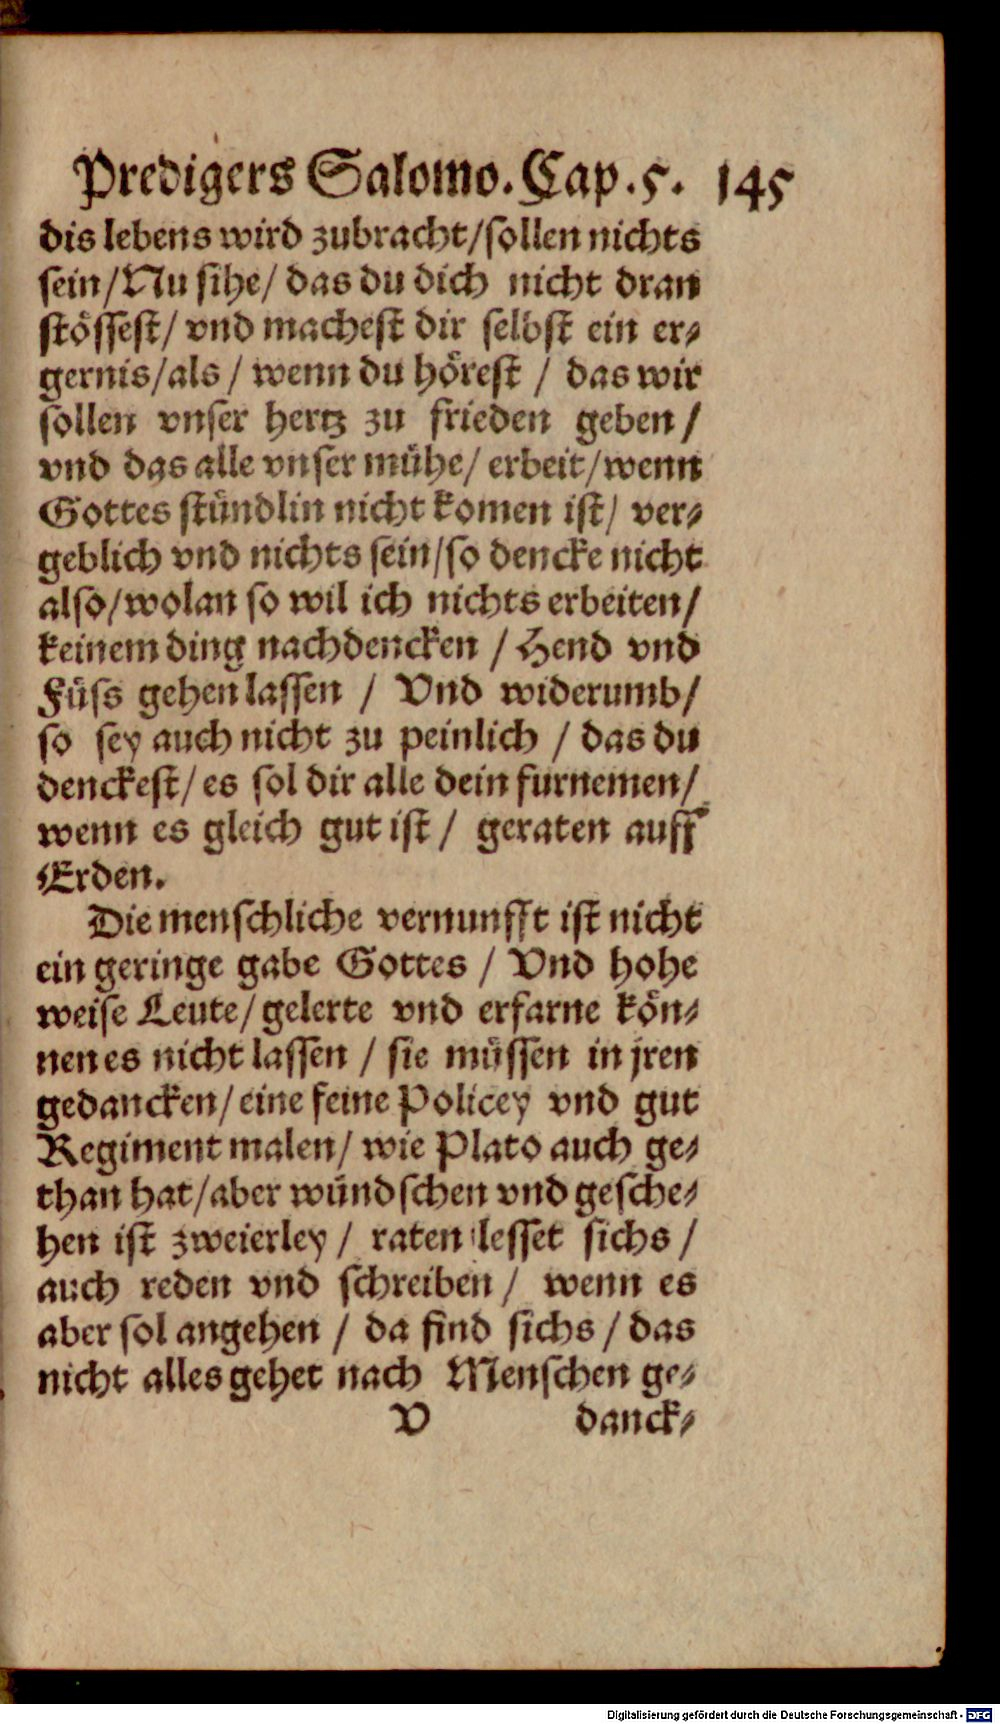 Predigers Salomo. Cap. 5. 145
dis lebens wird zubracht/sollen nichts
sein/Nu sihe/ das du dich nicht dran
stössest/ vnd machest dir selbst ein er-
gernis/als / wenn du hörest / das wir
sollen vnser hertz zu frieden geben /
vnd das alle vnser mühe/ erbeit/wenn
Gottes stündlin nicht komen ist/ ver-
geblich vnd nichts sein/so dencke nicht
also/wolan so wil ich nichts erbeiten/
keinem ding nachdencken / Hend vnd
Füss gehen lassen / Vnd widerumb/
so sey auch nicht zu peinlich / das du
denckest/ es sol dir alle dein furnemen/
wenn es gleich gut ist / geraten auff
Erden.
Die menschliche vernunfft ist nicht
ein geringe gabe Gottes / Vnd hohe
weise Leute/ gelerte vnd erfarne kön-
nen es nicht lassen / sie müssen in jren
gedancken/ eine feine Policey vnd gut
Regiment malen/ wie Plato auch ge-
than hat/aber wündschen vnd gesche-
hen ist zweierley / raten lesset sichs /
auch reden vnd schreiben / wenn es
aber sol angehen / da find sichs / das
nicht alles gehet nach Menschen ge-
V danck-
Digitalisierung gefördert durch die Deutsche Forschungsgemeinschaft - DFG